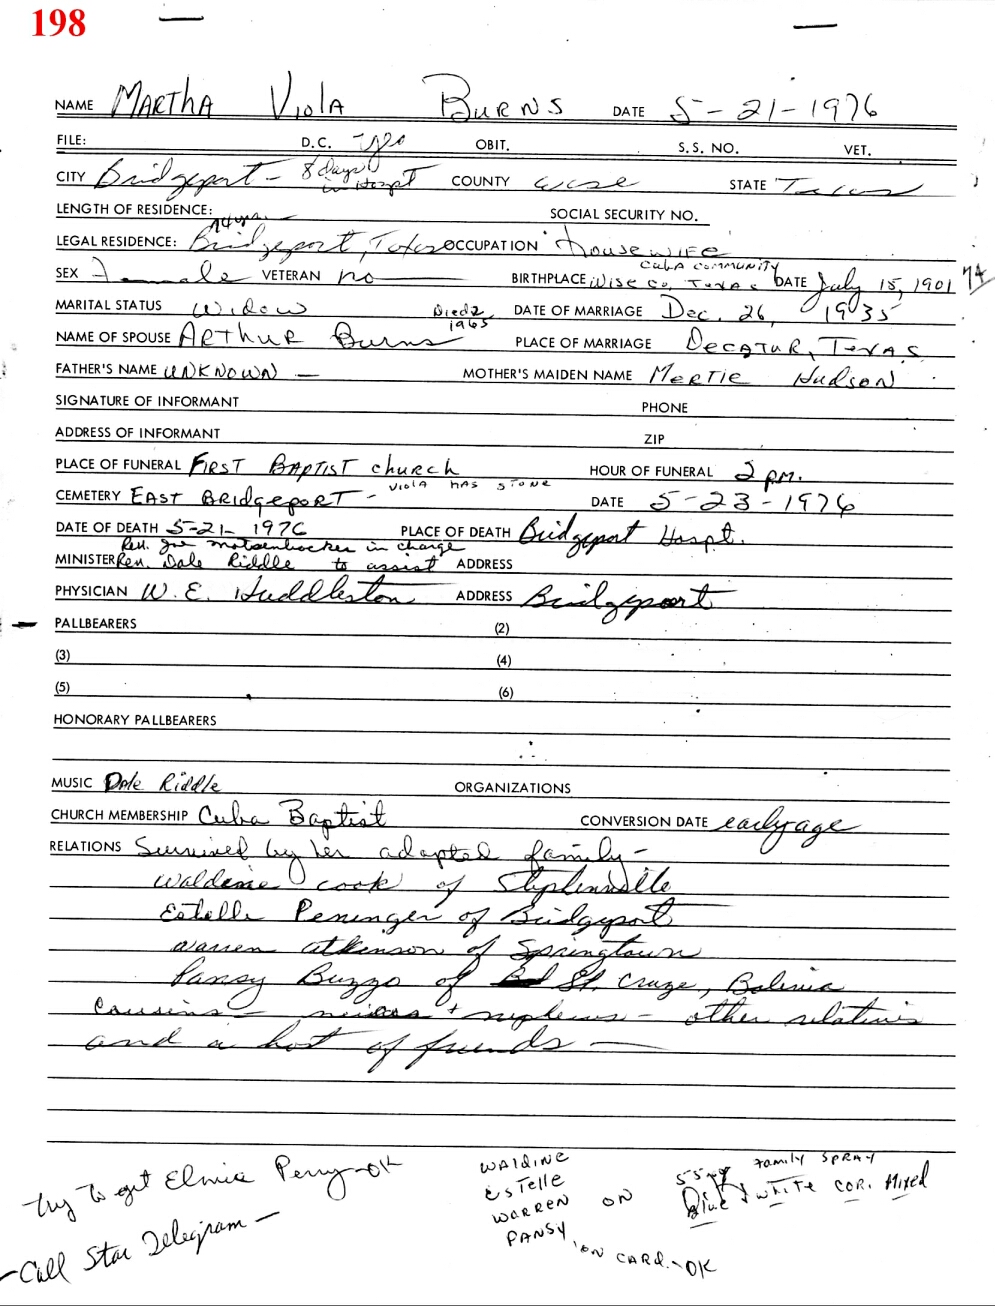 198
NAME MARTHA VIOLA BURNS DATE 5-21-1976
FILE: D.C. yes OBIT. S.S. NO. VET.
CITY Bridgeport - 8 days in Hospt COUNTY Wise STATE Texas
LENGTH OF RESIDENCE: 74 yrs. SOCIAL SECURITY NO.
LEGAL RESIDENCE: Bridgeport, Texas OCCUPATION Housewife
SEX Female VETERAN no BIRTHPLACE Wise Co, Texas Cuba Community DATE July 15, 1901 74
MARITAL STATUS Widow Died 1965 DATE OF MARRIAGE Dec. 26, 1935
NAME OF SPOUSE Arthur Burns PLACE OF MARRIAGE Decatur, Texas
FATHER'S NAME UNKNOWN — MOTHER'S MAIDEN NAME Mertie Hudson
SIGNATURE OF INFORMANT PHONE
ADDRESS OF INFORMANT ZIP
PLACE OF FUNERAL First Baptist church HOUR OF FUNERAL 2 pm.
CEMETERY East Bridgeport - Viola has stone DATE 5-23-1976
DATE OF DEATH 5-21-1976 PLACE OF DEATH Bridgeport Hospt.
Rev. Joe Motsenbocker in charge
MINISTER Rev. Dale Riddle to assist ADDRESS
PHYSICIAN W. E. Huddleston ADDRESS Bridgeport
PALLBEARERS (2)
(3) (4)
(5) (6)
HONORARY PALLBEARERS
MUSIC Dale Riddle ORGANIZATIONS
CHURCH MEMBERSHIP Cuba Baptist CONVERSION DATE early age
RELATIONS Survived by her adopted family -
Waldine Cook of Stephenville
Estelle Peninger of Bridgeport
Warren Atkinson of Springtown
Pansy Buzzo of St. Cruze, Bolivia
Cousins - neices + nephews - other relatives
and a host of friends —
Try to get Elmia Perry - OK
- Call Star Telegram -
WALDINE
ESTELLE
WARREN ON
PANSY
'ON CARD. - OK
Family SPRAY
55
Blue & White COR. Mixed